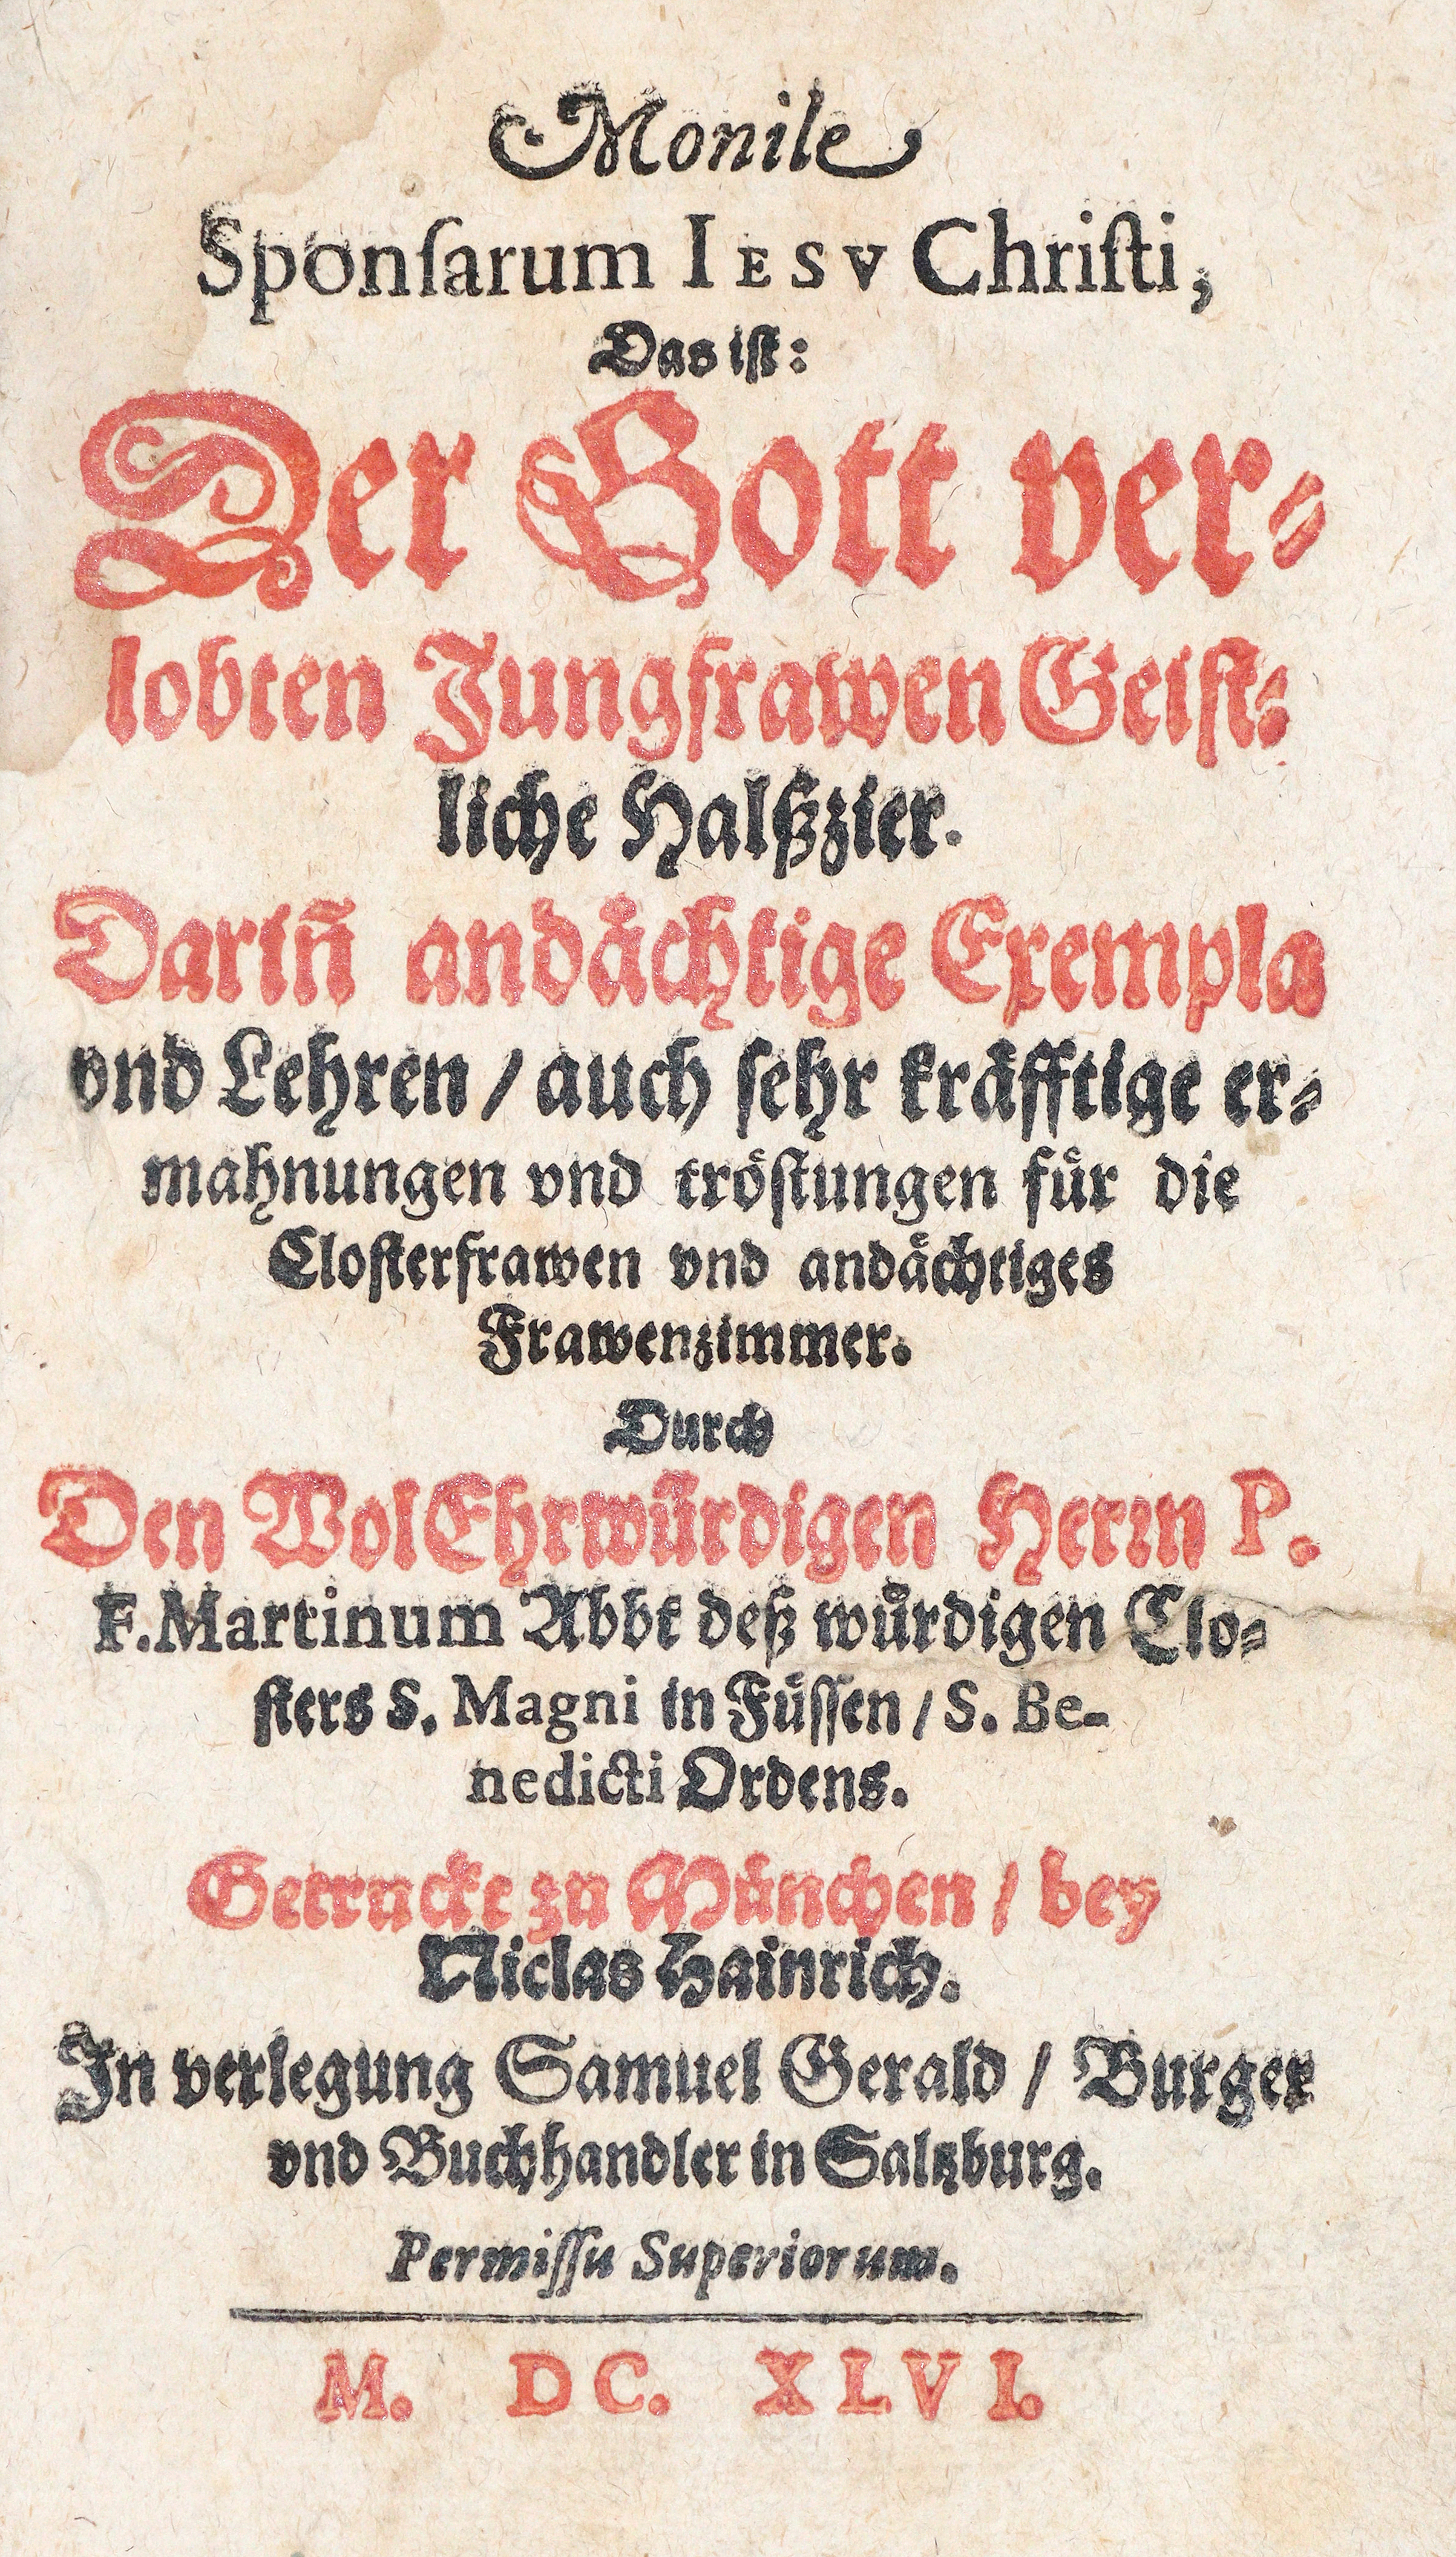 Monile
Sponſarum IESV Chriſti,
Das iſt:
Der Gott ver⸗
lobten Jungfrawen Geiſt⸗
liche Halßzier.
Dariñ andaͤchtige Exempla
vnd Lehren / auch ſehr kraͤfftige er⸗
mahnungen vnd troͤſtungen fuͤr die
Cloſterfrawen vnd andaͤchtiges
Frawenzimmer.
Durch
Den WolEhrwuͤrdigen Herrn P.
F. Martinum Abbt deß wuͤrdigen Clo⸗
ſters S. Magni in Fuͤſſen / S. Be-
nedicti Ordens.
Getruckt zu Muͤnchen / bey
Niclas Hainrich.
In verlegung Samuel Gerald / Burger
vnd Buchhandler in Saltzburg.
Permiſſu Superiorum.
M. DC. XLVI.